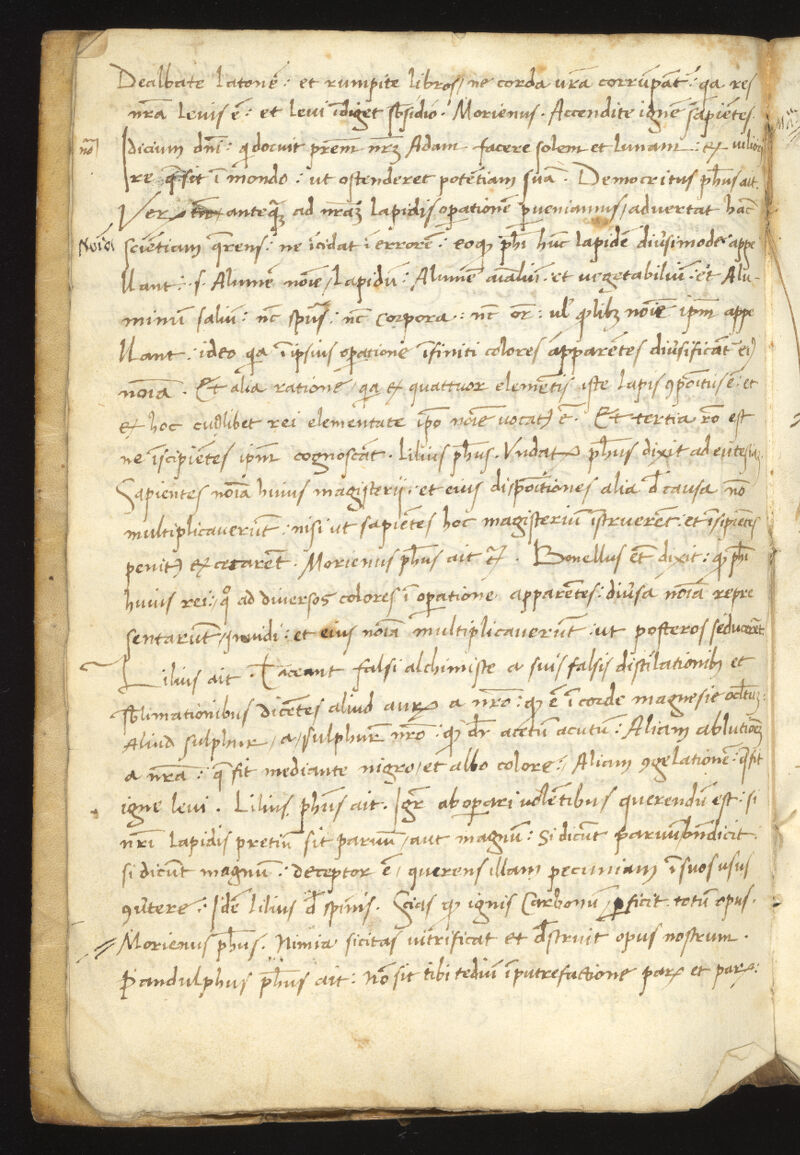 Dealbate Latonē: et rumpite libros, ne corda vrā corrūpāt: qa res
nrā levis ē: et levi īdiget sbsidio. Morienus. Accendite ignē sapiētes.
no Idicium dnī: qd docuit prēm nrm Adam facere solem et lunam: ex viliori
re que sit ī mondo: ut ostenderet potētiam suā. Democritus phus ait.
anteq ad nrā lapidis opationē pveniamus, advertat hāc
Noīa sciētiam querens: ne īcidat ī errorē: eo qd phi hūc lapidē diūsimode appe
llant: s. Alumē noīe, Lapidū: Alumē aīaliū et vegetabiliū: et Alu-
minū saliū: nc spūs: nc corpora: nc or: ul qlibz noīe ipm appe
llant: ideo qa ī ipsius opatione īfiniti colores apparētes diūsificāt ei
noīa. Et alia ratione, qa ex quattuor elemētis iste lapis 9positus ē: et
ex hoc cuilibet rei elementate ipo noīe vocat ē. Et tertia ro est
ne īscipiētes ipm cognoscāt. Lilius phus. phus dixit ad
Sapientes noīa huius magisterij: et eius dispōitiones alia d causa nō
multiplicaverūt: nisi ut sapiētes hoc magisteriū īstruerēt: et īsipiētes
penit excecarēt. Morienus phus ait. Bonellus et dixit: qd phi
huius rei: ad diversos colores ī opatione apparētes: diūsa noīa repre
sentarūt, īvidi: et eius noīa multiplicaverūt: ut posteros seducerēt
Lilius ait. Taceant falsi alchimiste a suis falsis distilationibz et
sblimationibus dicētes aliud aur a nro: qd ē ī corde magnesie
Aliud sulphur, a, sulphure nro: qd dr acetū acutū: Aliam ablutionē
a nrā: que fit mediante nigro, et albo colore, Aliam 9gelationē: que fit
igne levi. Lilius phus ait. Igr ab opari volētibus querendū est: si
nri lapidis pretiū sit parvū, aut magnū: Si dicūt parvū bn dicit:
si dicūt magnū: deceptor ē, querens illam pecuniam ī suos usus
9vtere: Idē Lilius d spinis. Scias qd ignis Carbonū, pficit totū opus.
Morienus phus. Nimia sicitas vitrificat et dstruit opus nostrum.
Pandulphus phus ait: Nō sit tibi tediū ī putrefactione par et par: